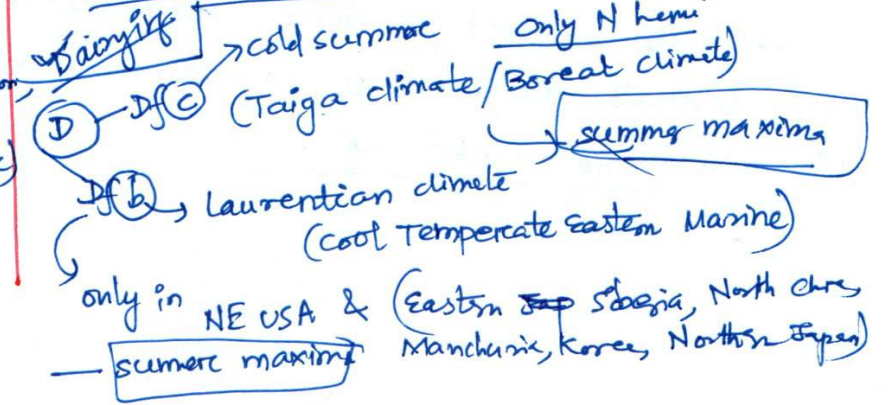 Dairying
Only N hemi
D - Df(c) → cold summer
(Taiga climate/Boreal climate)
→ summer maxima
Df(b) → Laurentian climate
(Cool Temperate Eastern Marine)
only in NE USA & (Eastern Siberia, North China,
Manchuria, Korea, Northern Japan)
— summer maxima